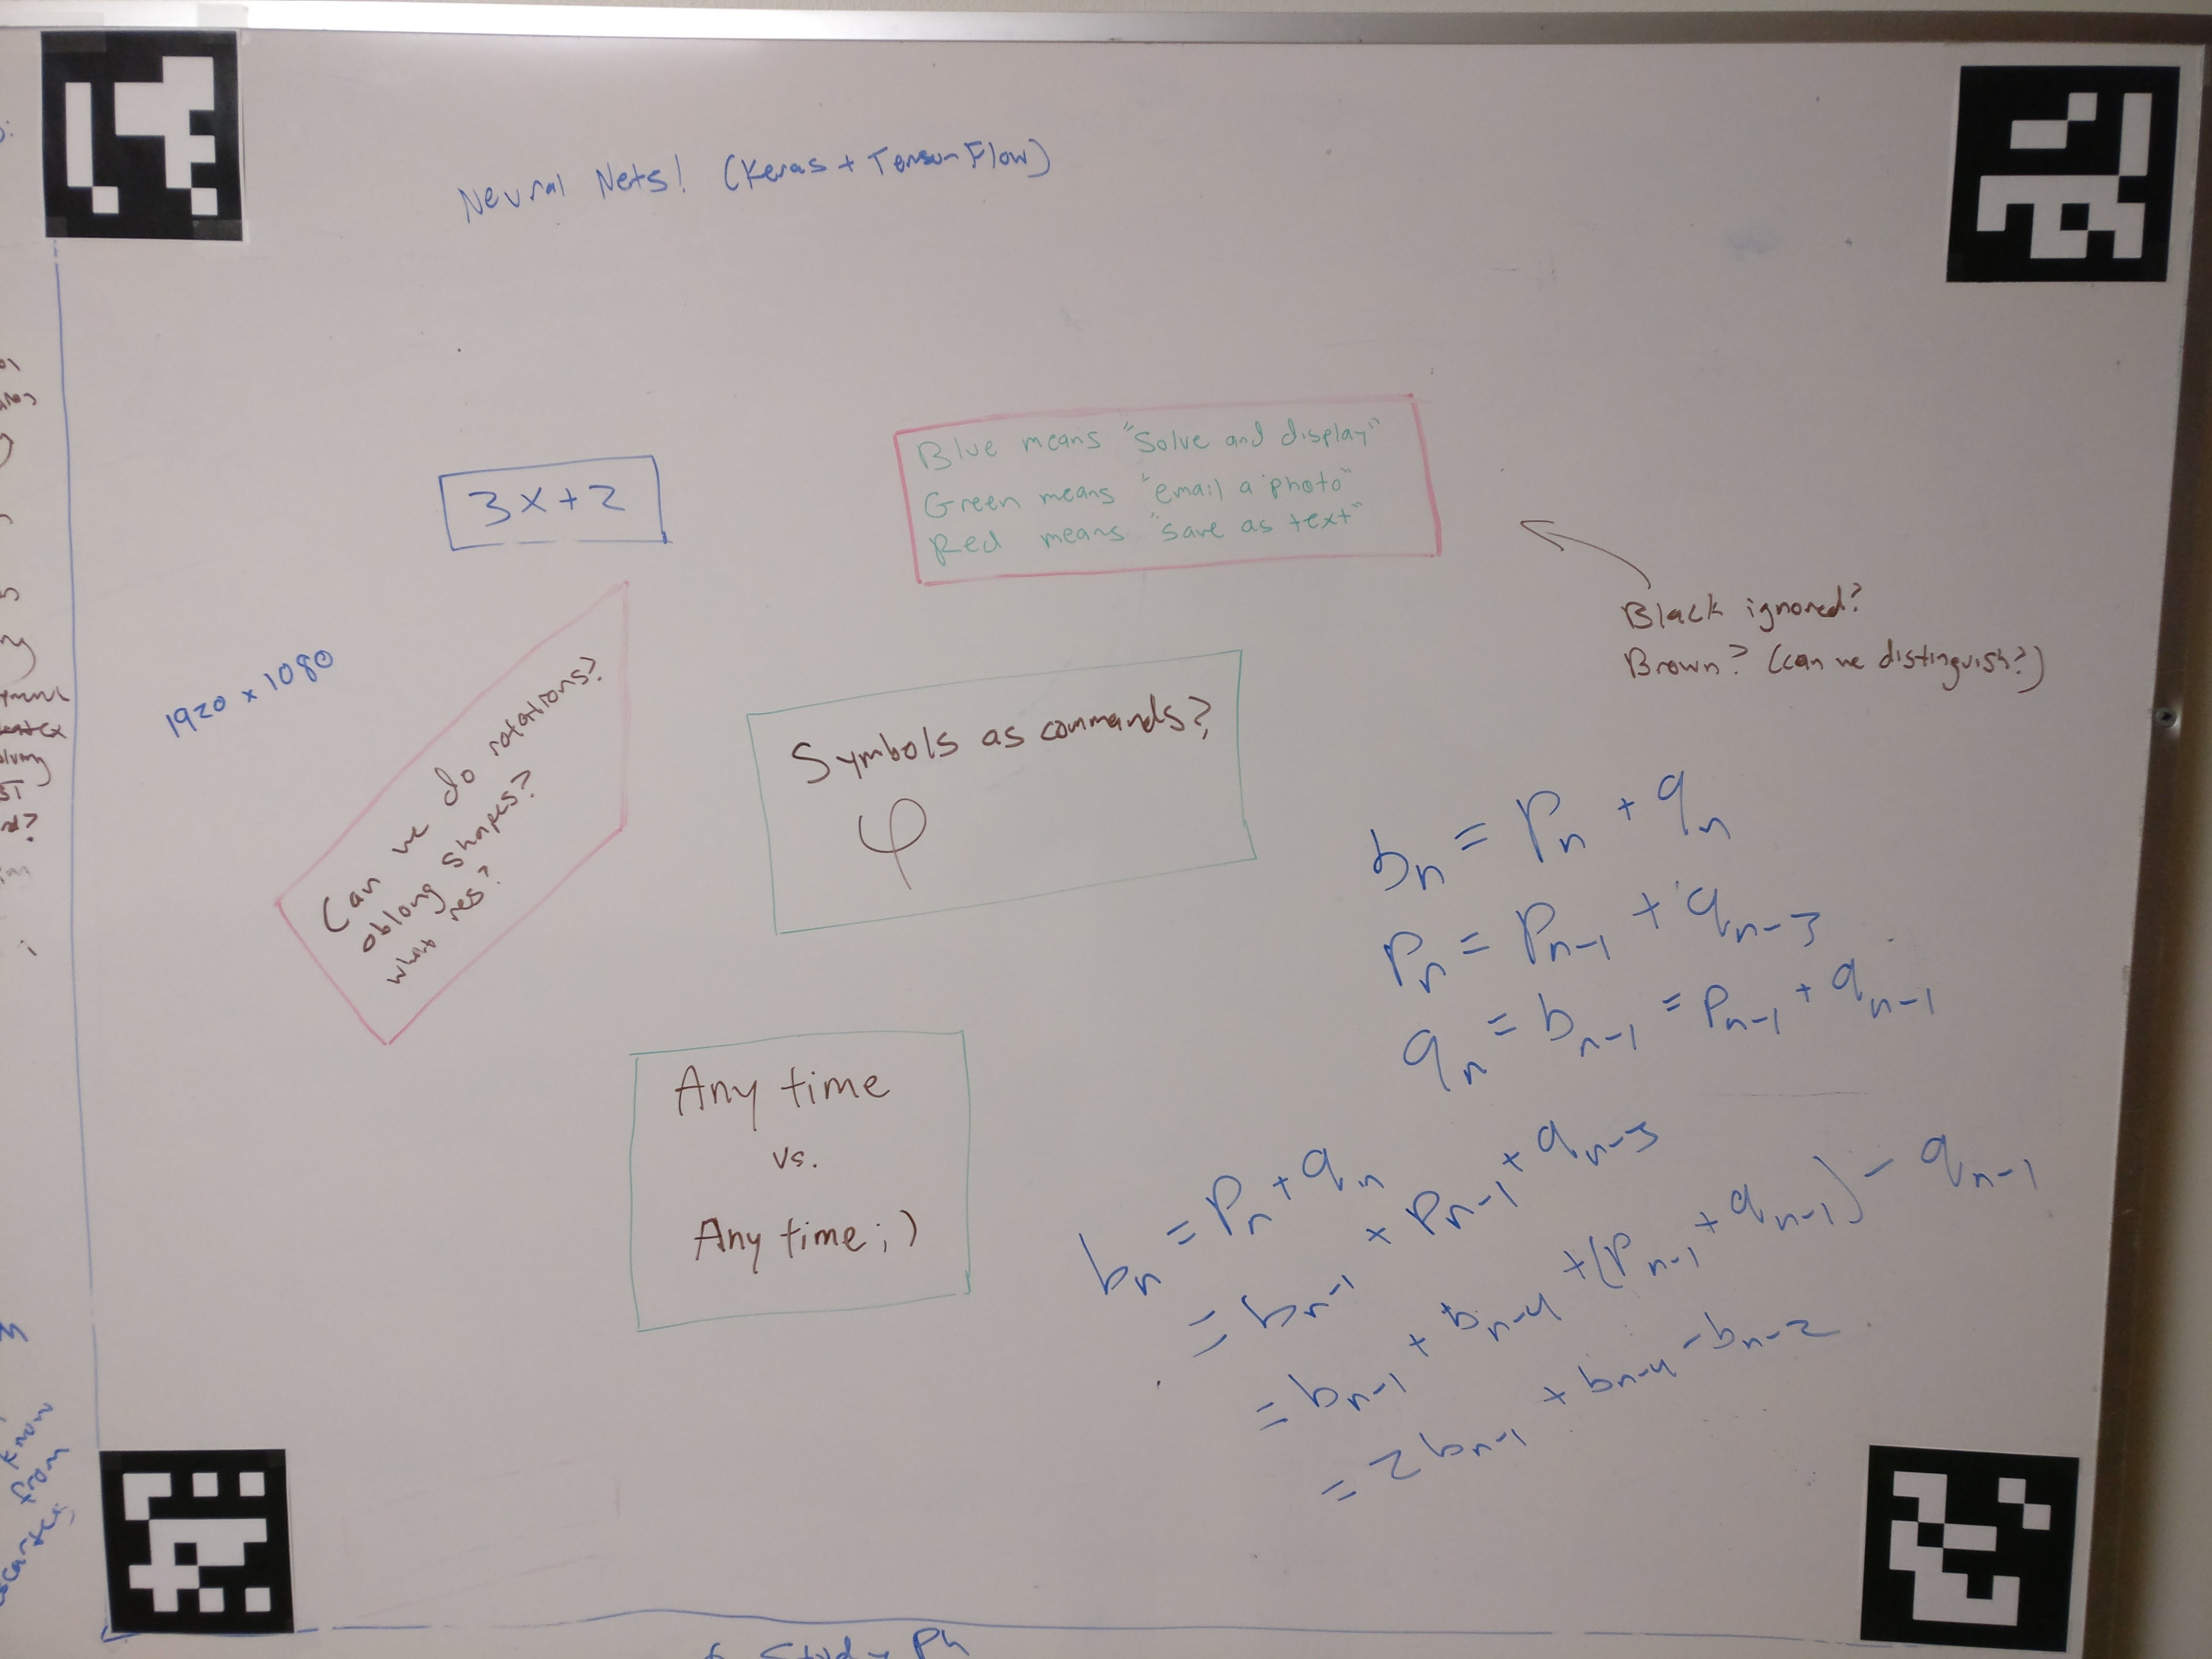 Neural Nets! (Keras + TensorFlow)
3x+2
Blue means "Solve and display"
Green means "email a photo"
Red means "save as text"
Black ignored?
Brown? (can we distinguish?)
1920 x 1080
Can we do rotations?
oblong shapes?
what res?
Symbols as commands?
φ
Any time
vs.
Any time ;)
bₙ = pₙ + qₙ
pₙ = pₙ₋₁ + qₙ₋₃
qₙ = bₙ₋₁ = pₙ₋₁ + qₙ₋₁
bₙ = pₙ + qₙ
= bₙ₋₁ + pₙ₋₁ + qₙ₋₃
= bₙ₋₁ + bₙ₋₄ + (pₙ₋₁ + qₙ₋₁) - qₙ₋₁
= 2bₙ₋₁ + bₙ₋₄ - bₙ₋₂
know
from
Study Ph